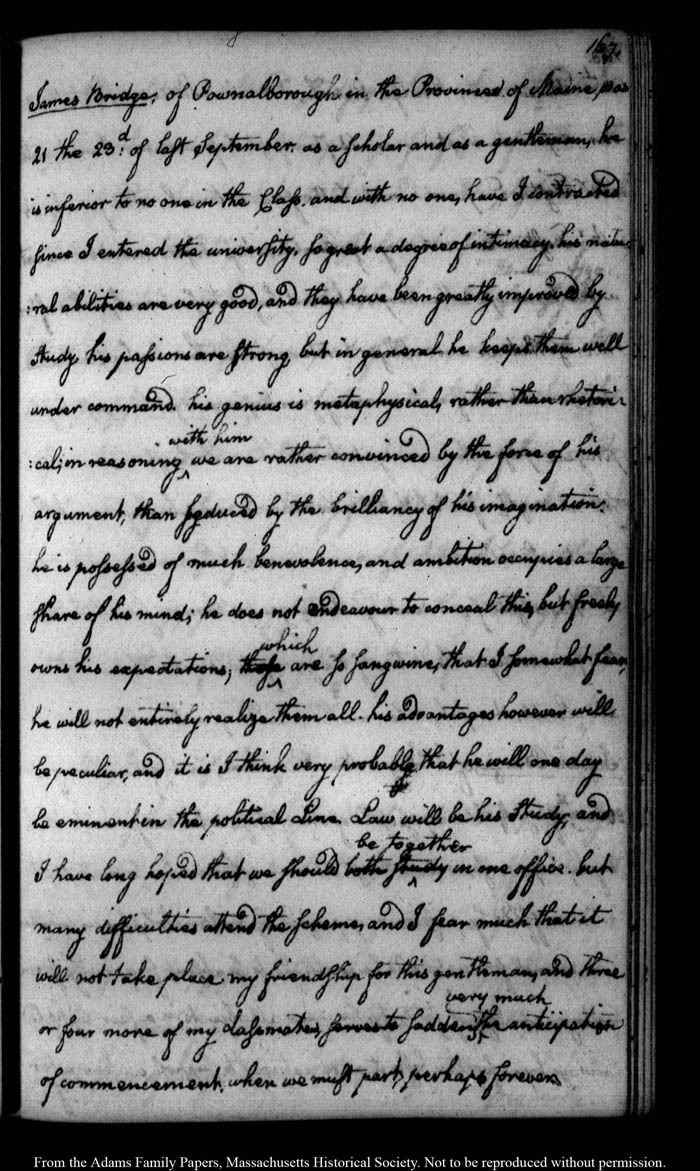 167.
James Bridge, of Pownalborough in the Province of Maine, was
21 the 23d: of last September. as a scholar and as a gentleman, he
is inferior to no one in the Class. and with no one, have I contracted
since I entered the university, so great a degree of intimacy. his natu-
:ral abilities are very good, and they have been greatly improved by
study. his passions are strong, but in general he keeps them well
under command. his genius is metaphysical, rather than rhetori:
with him
:cal; in reasoning ^ we are rather convinced by the force of his
argument, than seduced by the brilliancy of his imagination.
he is possessed of much benevolence, and ambition occupies a large
share of his mind; he does not endeavour to conceal this, but freely
which
owns his expectations; those ^ are so sanguine, that I somewhat fear,
he will not entirely realize them all. his advantages however will
be peculiar, and it is I think very probable that he will one day
be eminent in the political Line. Law will be his study; and
be together
I have long hoped that we should both study ^ in one office. but
many difficulties attend the scheme, and I fear much that it
will not take place. my friendship for this gentleman, and three
very much
or four more of my classmates, serves to sadden ^ the anticipation
of commencement, when we must part, perhaps forever.
From the Adams Family Papers, Massachusetts Historical Society. Not to be reproduced without permission.